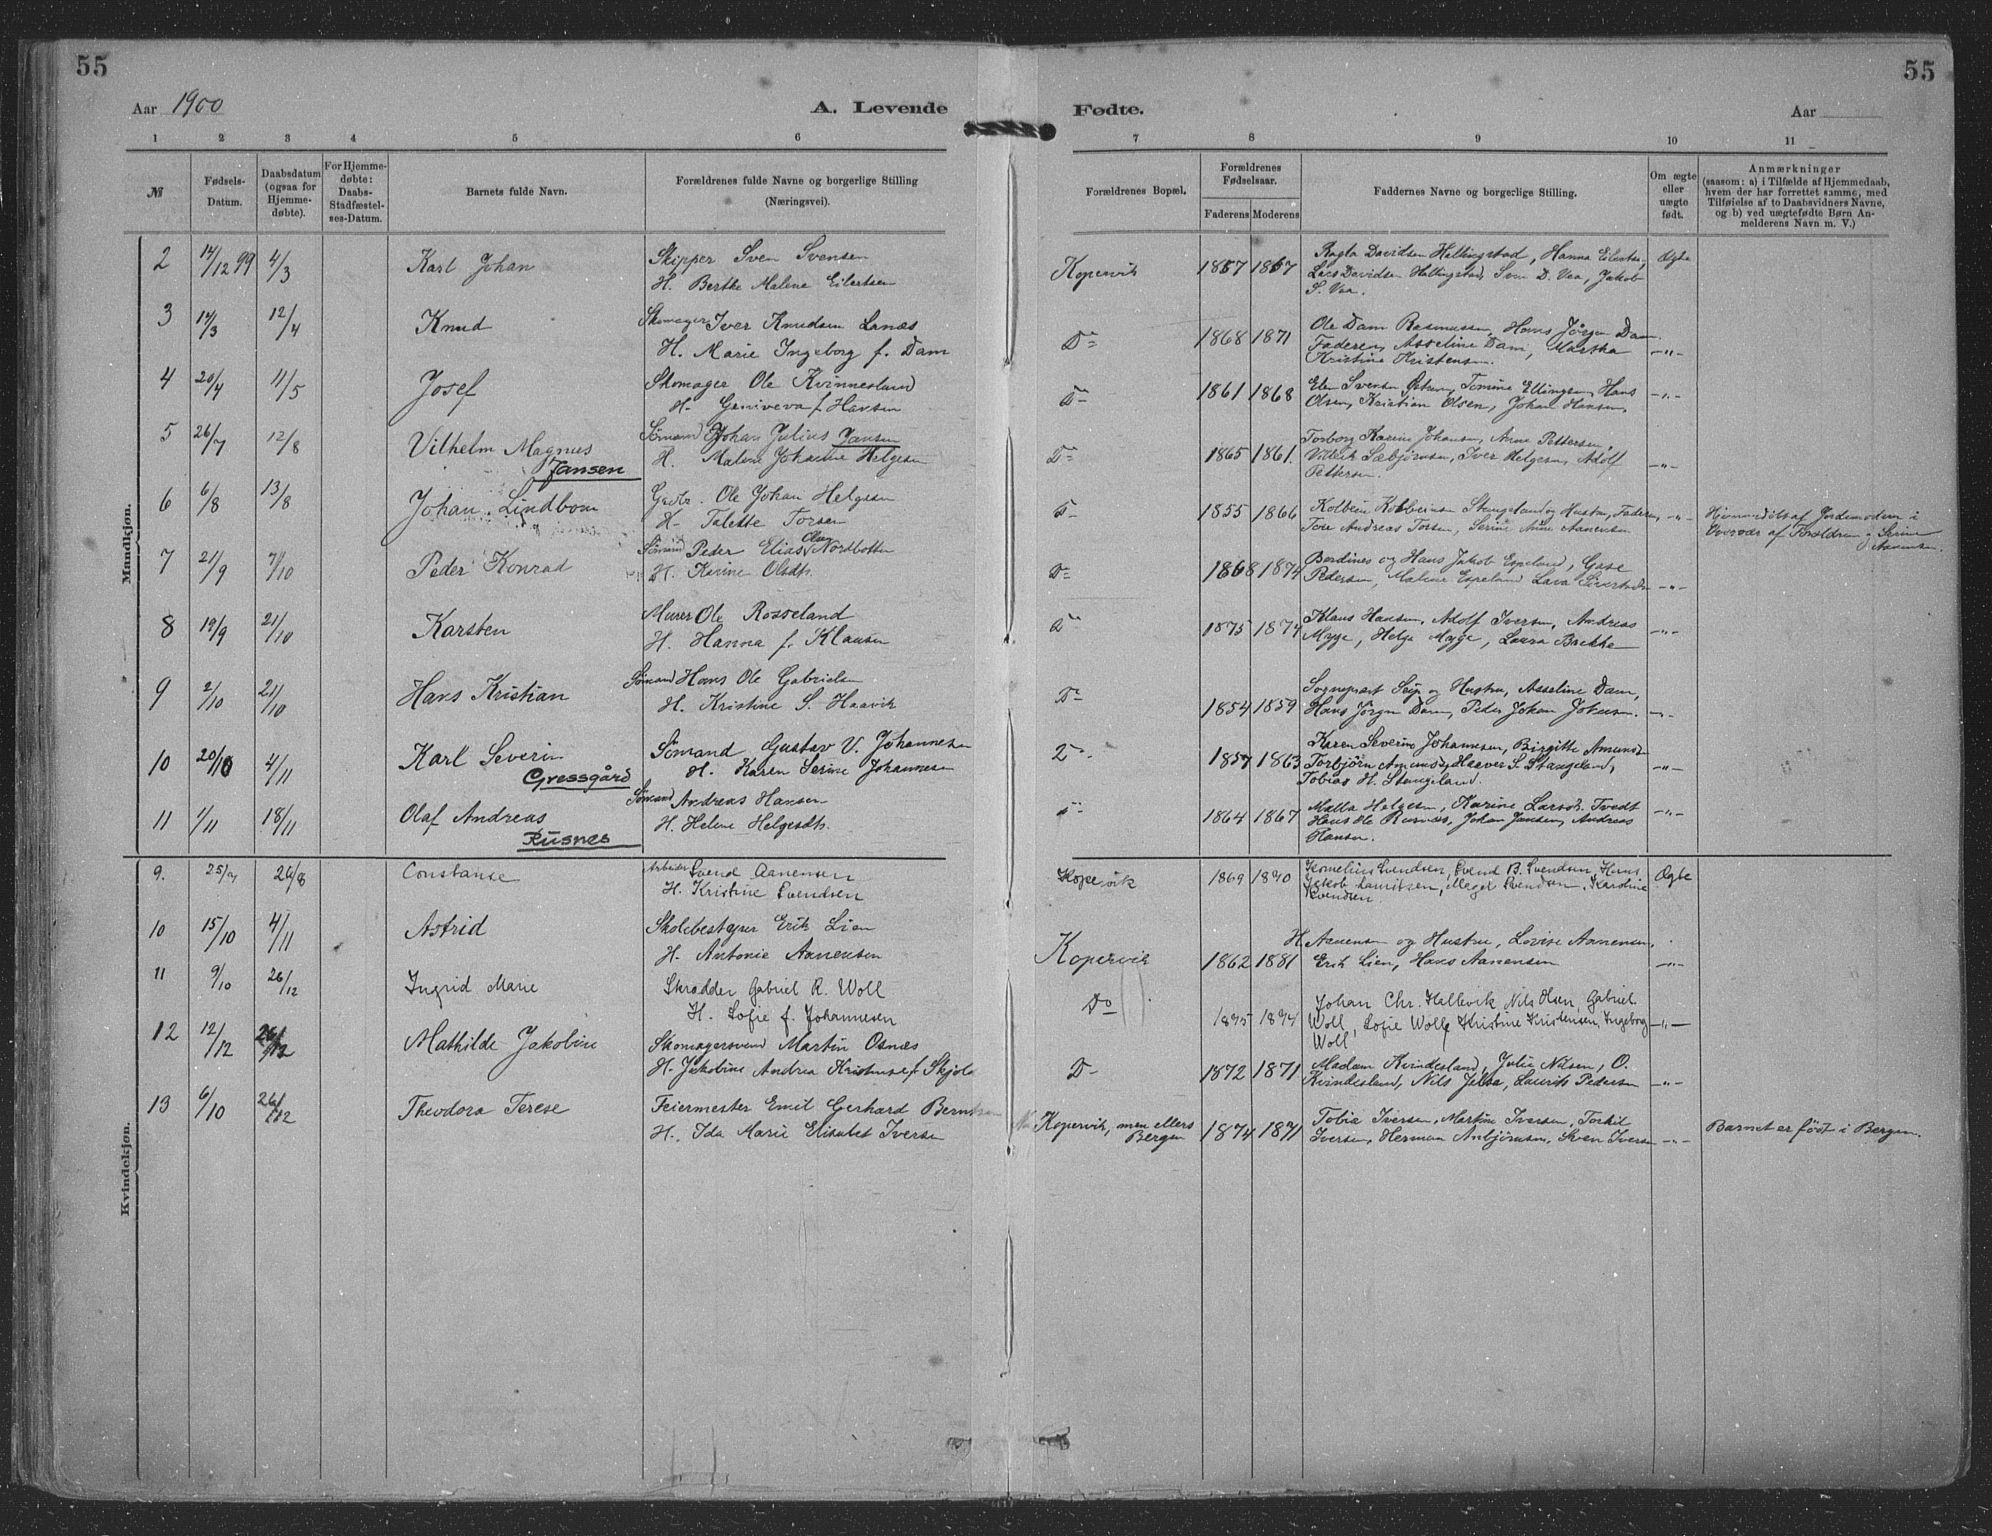 55
55
Aar 1900
A. Levende
Fødte.
Aar
1 2 3 4 5 6 7 8 9 10 11
№
Fødsels-Datum.
Daabsdatum (ogsaa for Hjemmedøbte).
For Hjemmedøbte: Daabs-Stadfæstelses-Datum.
Barnets fulde Navn.
Forældrenes fulde Navne og borgerlige Stilling (Næringsvei).
Forældrenes Bopæl.
Forældrenes Fødselsaar.
Faderens Moderens
Faddernes Navne og borgerlige Stilling.
Om ægte eller uægte født.
Anmærkninger
(saasom: a) i Tilfælde af Hjemmedaab,
hvem der har forrettet samme, med
Tilføielse af to Daabsvidners Navne,
og b) ved uægtefødte Børn An-
melderens Navn m. V.)
Mandkjøn.
2 14/12 99 4/3 Karl Johan Skipper Sven Svensen
H. Berthe Malene Eilertsen
Kopervik 1857 1867
Lars Davidsen Hallingstad, Sven D. Vaa, Jakob
S. Vaa.
Ægte
3 14/3 12/4 Knud Skomager Iver Knudsen Lanæs
H. Marie Ingeborg f. Dam
Do 1868 1871 Ole Dam Rasmussen, Hans Jörgen Dam
Faderen, Asseline Dam, Martha
Kristine Kristensen. -"-
4 20/4 11/5 Josef Skomager Ole Kvinnesland
H. Geniveva f. Hansen
Do 1861 1868 Tomine Ellingsen, Hans
Olsen, Kristian Olsen, Johan Hansen. -"-
5 26/7 12/8 Vilhelm Magnus
Jansen
Sömand Johan Julius Jansen
H. Malene Johanne Helgesen
Do 1865 1861. Torborg Karine Johansen, Anne Pettersen,
Sæbjörnsen, Iver Helgesen, Adolf
Pettersen. -"-
6 6/8 13/8 Johan Lindbom Ole Johan Helgesen
H. Talette Torsen
1855 1866 Kolbein Kolbeinsen Stangeland og Hustru, Faderen,
Tore Andreas Torsen, Serine Anne Aanensen -"-
Hjemmedöbt af Jordemoderen i
Overvær af Forældrene og Serine
Aanensen.
7 21/9 7/10 Peder Konrad Sömand Peder Elias Olsen Nordbotten
H. Karine Olsdtr.
Do 1868 1874 Hans Jakob Espeland,
Pedersen, Malene Espeland -"-
8 19/9 21/10 Karsten Murer Ole Rosseland
H. Hanna f. Klausen
Do 1875 1874 Klaus Hansen, Adolf Iversen, Andreas
Mygge, Helge Mygge, Laura Brekke -"-
9 2/10 21/10 Hans Kristian Sömand Hans Ole Gabrielsen
H. Kristine S. Haavik
Do 1854 1859 Sogneprest Seip og Hustru, Asseline Dam,
Hans Jörgen Dam, Peder Johan Johnsen. -"-
10 20/10 4/11 Karl Severin
Gressgård
Sömand Gustav V. Johannesen
H. Karen Serine Johannesen
1857 1863 Karen Severine Johannesen, Birgitte Amunds.
Torbjörn Amundsen, Haaver S. Stangeland,
Tobias H. Stangeland. -"-
11 1/11 18/11 Olaf Andreas
Rusnes
Sömand Andreas Hansen
H. Helene Helgesdtr.
1864 1867 Malla Helgesen, Karine Larsdtr. Tvedt
Hans Ole Rusnæs, Johan Jansen, Andreas
Hansen. -"-
Kvindekjøn.
9. 25/7 26/8 Constanse Arbeider Svend Aanensen
H. Kristine Svendsen
Kopervik 1869 1870 Kornelius Svendsen, Svend B. Svendsen, Hans
Jakob Lauritsen, Meget Svendsen, Karoline
Svendsen Ægte
10 15/10 4/11 Astrid Skolebestyrer Erik Lien
H. Antonie Aanensen
Kopervik 1862 1881 H. Aanensen og Hustru, Lovise Aanensen,
Erik Lien, Hans Aanensen -"-
11 9/10 26/12 Ingrid Marie Skrædder Gabriel R. Woll
H. Sofie f. Johannesen
Do 1875 1874 Johan Chr. Hallevik Nils Olsen, Gabriel
Woll, Sofie Woll, Kristine Kristensen, Ingeborg
Woll -"-
12 12/12 26/12 Mathilde Jakobine Skomagersvend Martin Osnæs
H. Jakobine Andrea Kristense f. Skjold
Do 1872 1871 Madam Kvindesland, Julie Nilsen, O.
Kvindesland, Nils Jelsa, Laurits Pedersen -"-
13 6/10 26/12 Theodora Terese Feiermester Emil Gerhard Berntsen
H. Ida Marie Elisabet Iversen
Kopervik, men ellers
Bergen
1874 1871 Tobia Iversen, Martine Iversen, Torkil
Iversen, Herman Anbjörnsen, Sven Iversen -"-
Barnet er födt i Bergen.